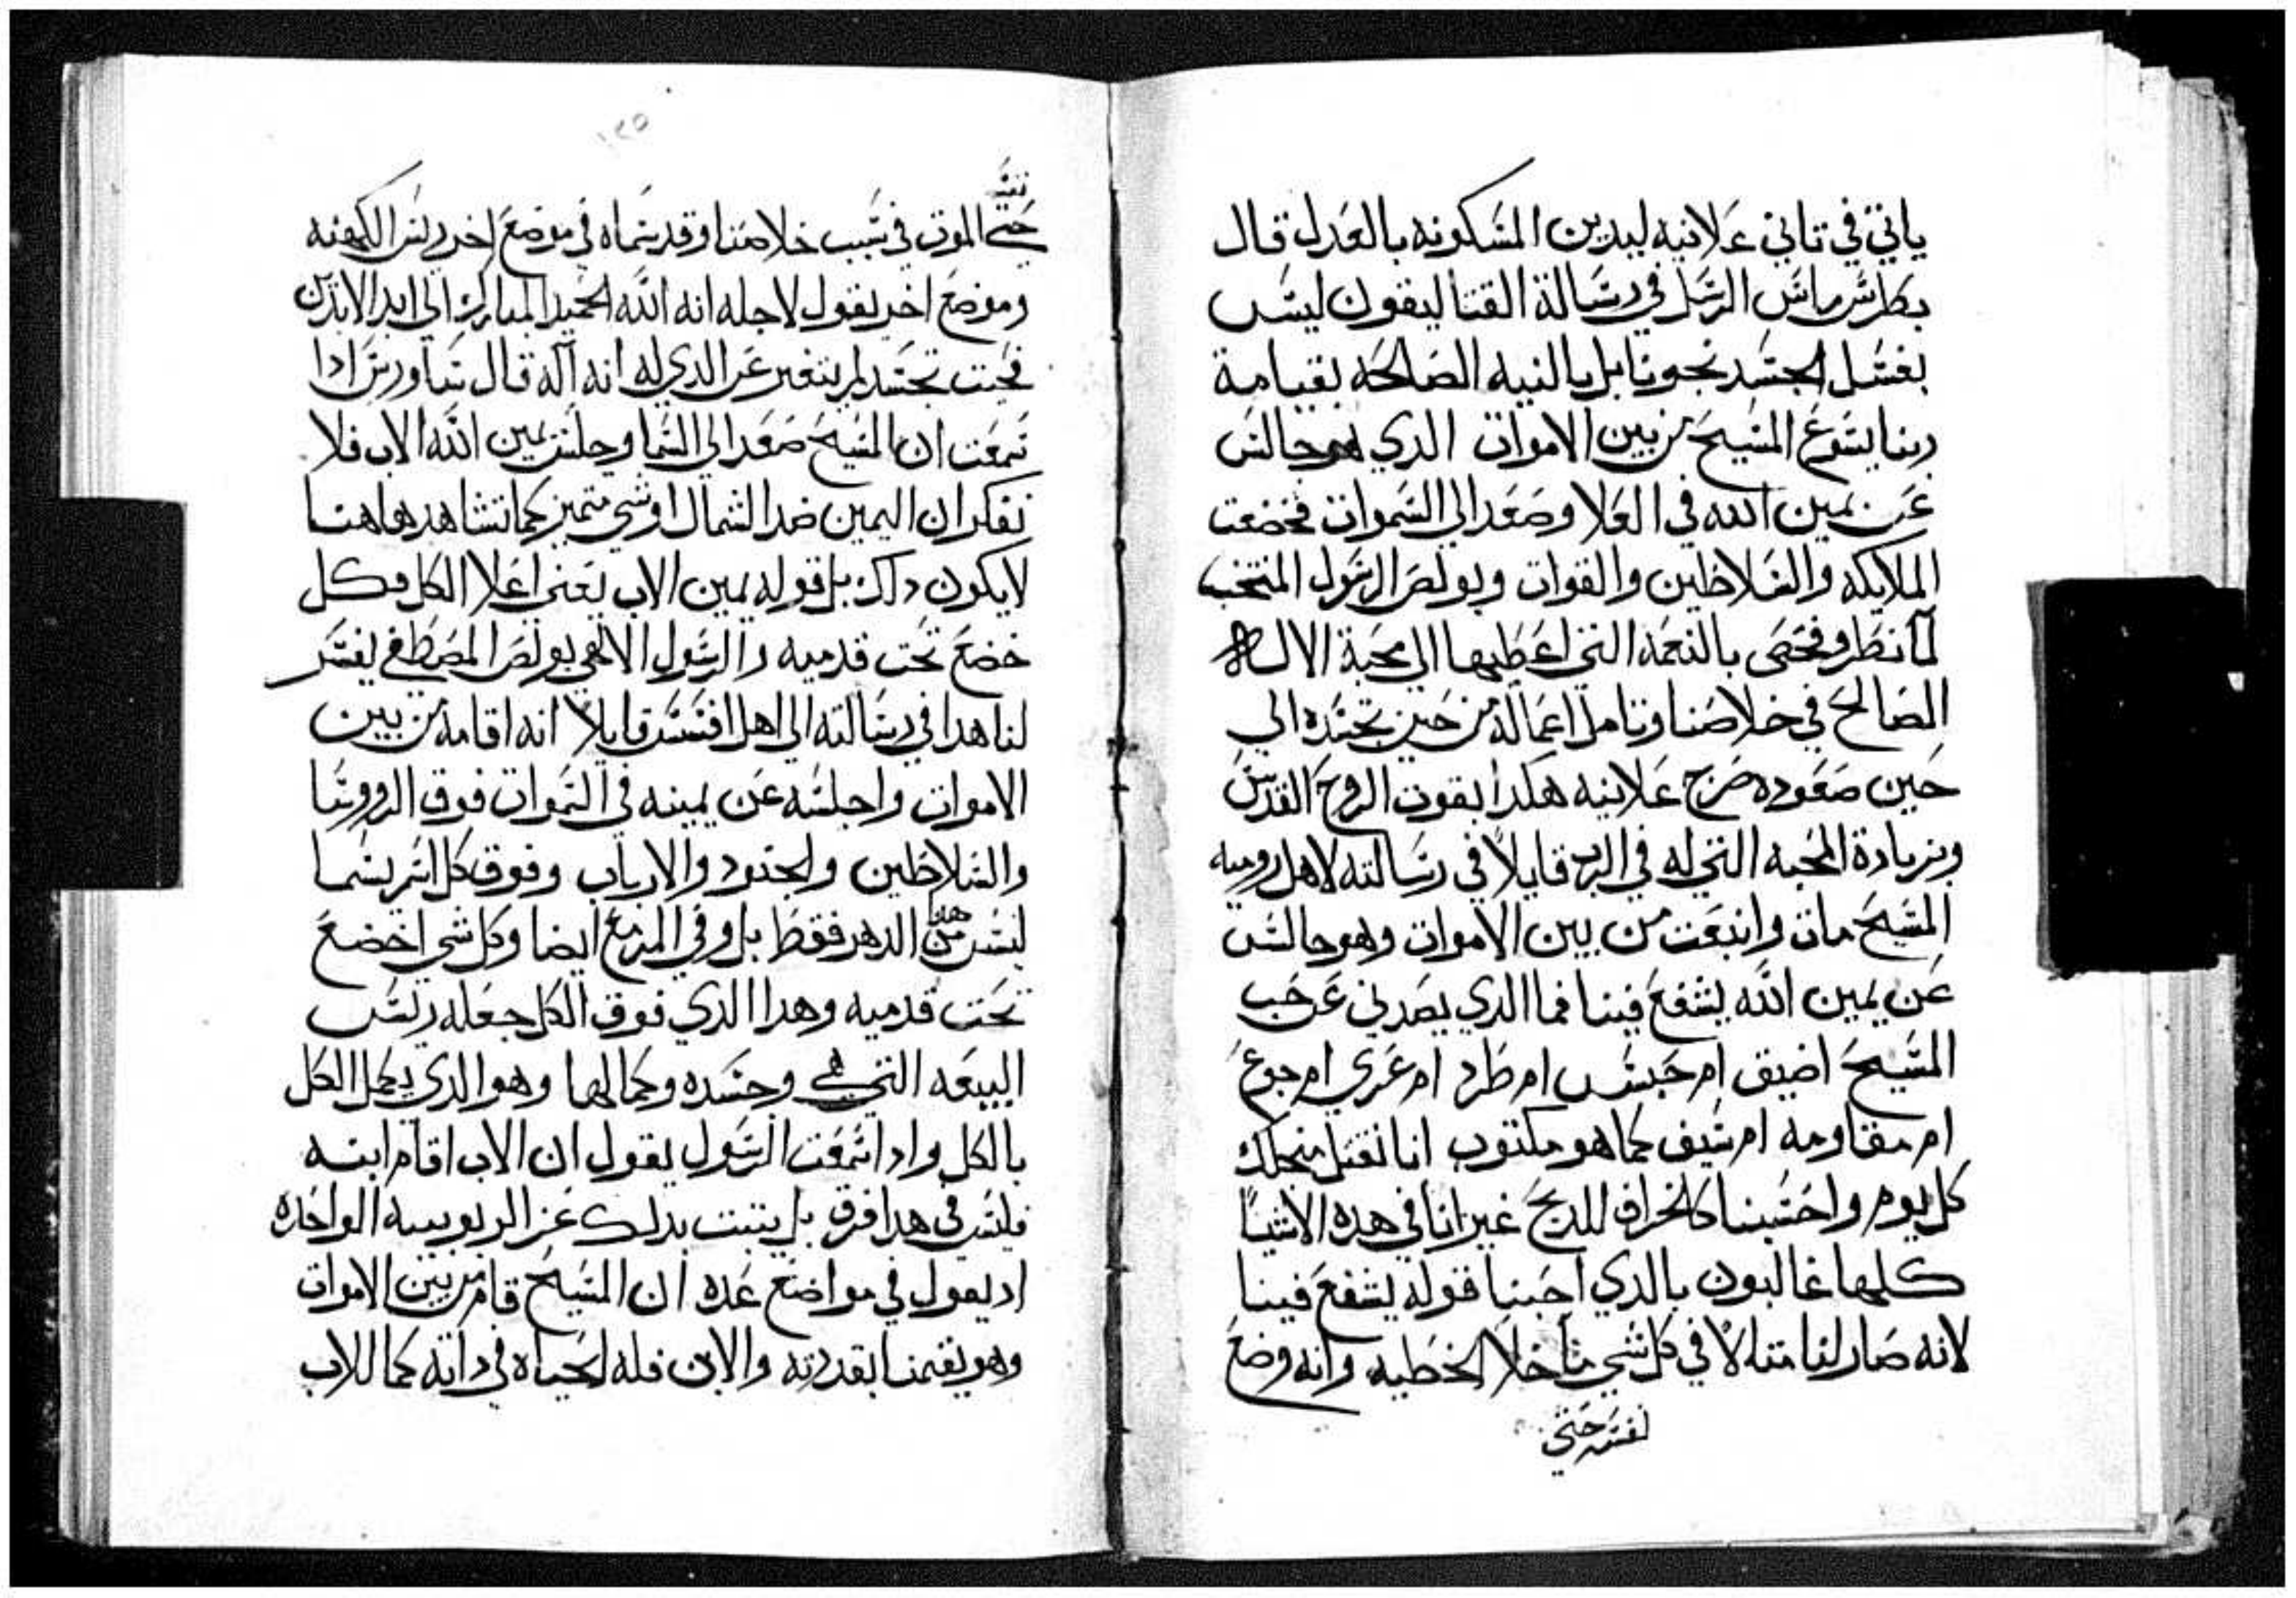 ياتي في تاني علانيه ليدين المسكونه بالعدل قال
بطرس راس الرسل في رسالة القتاليقون ليس
بغسل الجسد نجونا بل بالنيه الصالحه بقيامة
ربنا يسوع المسيح من بين الاموات الدي هو جالس
عن يمين الله في العلا وصعد الي السموات فخضعت
الملايكه والسلاطين والقوات وبولص الرسول المنتخب
لما نظر وفحص بالنعمه التي اعطيها الي محبة الالاه
الصالح في خلاصنا وتامل اعماله من حين تجسده الي
حين صعوده صرخ علانيه هكدا بقوت الروح القدس
وبزيادة المحبه التي له في الرب قايلاً في رسالته لاهل روميه
المسيح مات وانبعت من بين الاموات وهو جالس
عن يمين الله يشفع فينا فما الدي يصدني عن حب
المسيح اضيق ام حبس ام طرد ام عري ام جوع
ام مقاومه ام سيف كما هو مكتوب انا نقتل منجلك
كل يوم واحتسبنا كالخراف للدبح غير انا في هده الاشيا
كلها غالبون بالدي احبنا قوله يشفع فينا
لانه صار لنا متالاً في كل شي ما خلا الخطيه وانه وضع
نفسه حتي
١٢٥
نفسه
حتي الموت في سبب خلاصنا وقد سماه في موضع اخر ريس الكهنه
وموضع اخر يقول لاجله انه الله الحميد المبارك الي ابد الابدين
فحيت تجسد لم يتغير عن الدي له انه اله قال ساورس ادا
سمعت ان المسيح صعد الي السما وجلس يمين الله الاب فلا
تفكر ان اليمين ضد الشمال او شي متميز كما تشاهد هاهنا
لا يكون داك بل قوله يمين الاب يعني اعلا الكل وكل
خضع تحت قدميه والرسول الالاهي بولص المصطفي يفسر
لنا هدا في رسالته الي اهل افسس قايلاً انه اقامه من بين
الاموات واجلسه عن يمينه في السموات فوق الروسا
والسلاطين والجنود والارباب وفوق كل اسم يسما
ليس من هدا الدهر فقط بل وفي المزمع ايضا وكل شي اخضع
تحت قدميه وهدا الدي فوق الكل جعله ريس
البيعه التي هي وجسده وكمالها وهو الدي يكمل الكل
بالكل وادا سمعت الرسول يقول ان الاب اقام ابنه
فليس في هدا فرق بل يتبت بدلك عز الربوبيه الواحده
اد يقول في مواضع عده ان المسيح قام من بين الاموات
وهو يقيمنا بقدرته والابن فله الحياه في داته كما للاب